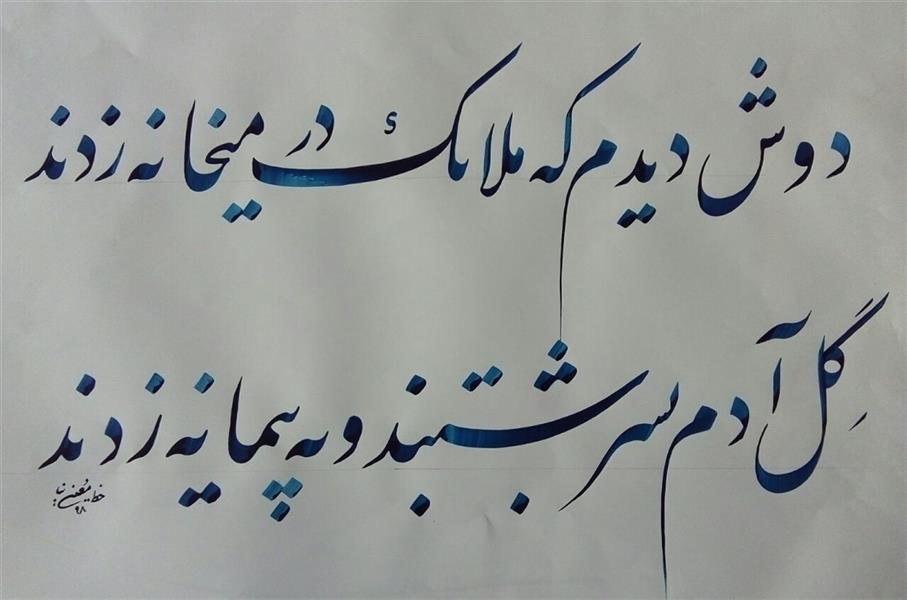 دوش دیدم که ملائک در میخانه زدند
گِل آدم بسرشتند و به پیمانه زدند
۹۸